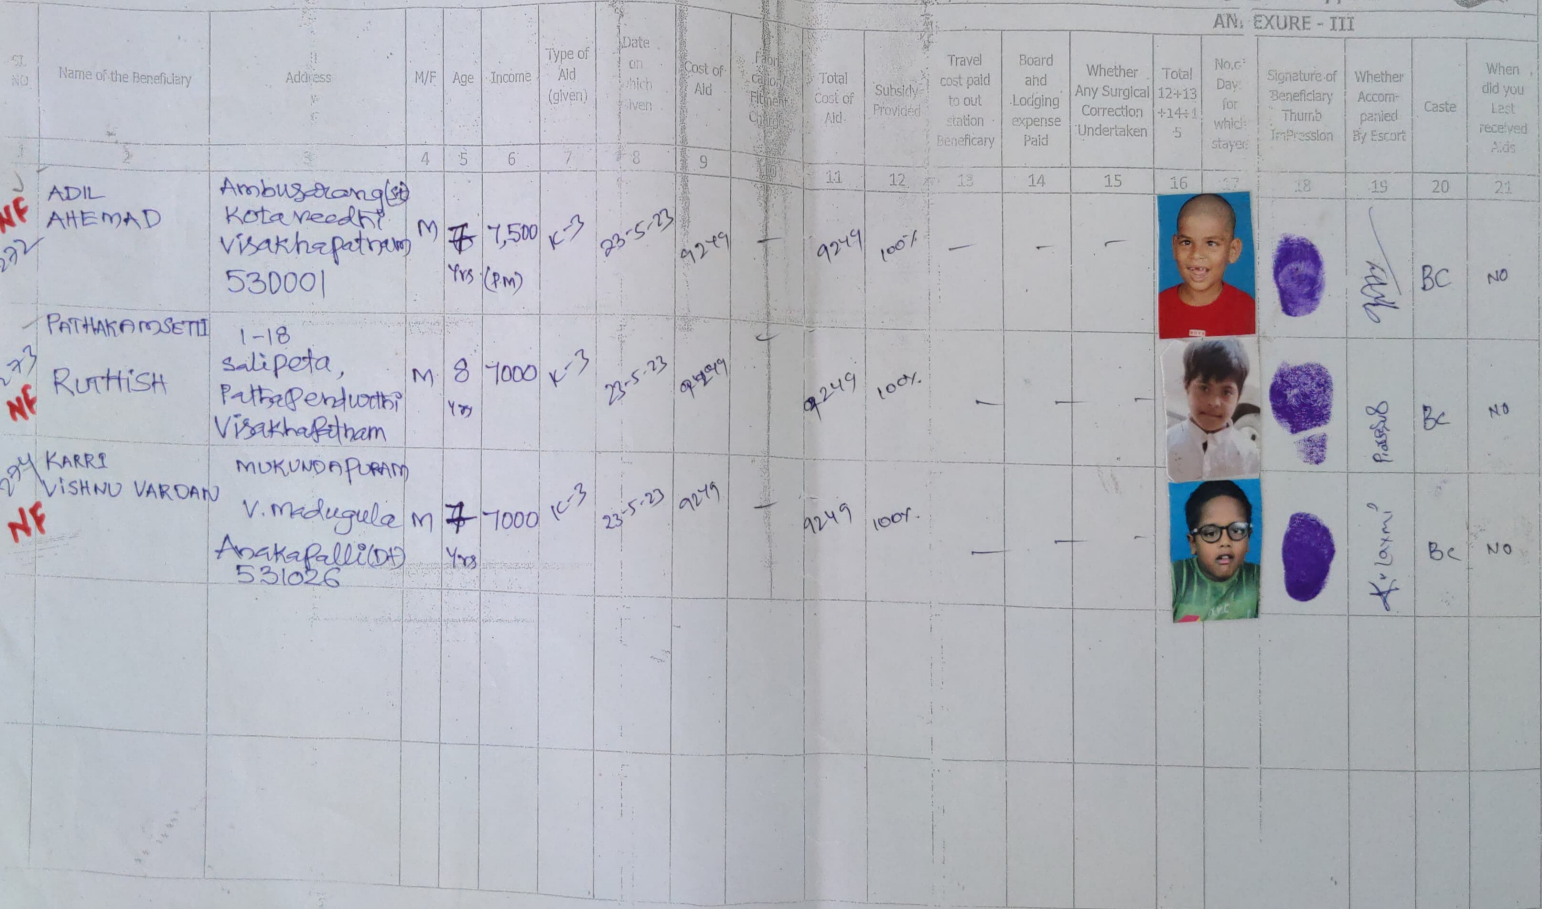 ANNEXURE - III
Sl. NO.
Name of the Beneficiary
Address
M/F
Age
Income
Type of
Aid
(given)
Date
on
which
Given
Cost of
Aid
Total
Cost of
Aid
Subsidy
Provided
Travel
cost paid
to out
station
Beneficary
Board
and
Lodging
expense
Paid
Whether
Any Surgical
Correction
Undertaken
Total
12+13
+14+1
5
No.of
Days
for
which
stayed
Signature of
Beneficiary
Thumb
ImPression
Whether
Accom-
panied
By Escort
Caste
When
did you
Last
received
Aids
2 3 4 5 6 7 8 9 11 12 13 14 15 16 17 18 19 20 21
NF
272
ADIL
AHEMAD
Kotaveedhi
Visakhapatnam
530001
M
7
Yrs
7,500
(P.M)
K-3
23-5-23
9249
—
9249
100%
—
—
—
BC
NO
273
NF
PATHAKAMSETTI
RUTHISH
1-18
Salipeta,
Visakhapatnam
M
8
Yrs
7000
K-3
23-5-23
9249
9249
100%
—
—
—
BC
NO
274
NF
KARRI
VISHNU VARDAN
MUKUNDAPURAM
V. Madugula
Anakapalli(Dt)
531026
M
7
Yrs
7000
K-3
23-5-23
9249
—
9249
100%
—
—
—
K. Laxmi
BC
NO